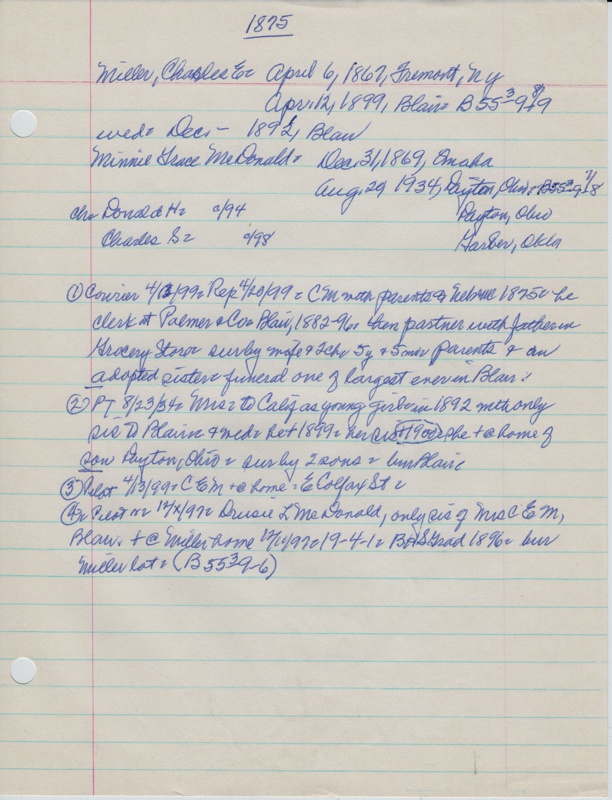 1875
Miller, Charles E= April 6, 1867, Fremont, Ny
Apr. 12, 1899, Blair= B 55-3-9-8/9
wed= Dec. - 1892, Blair
Minnie Grace McDonald= Dec. 31, 1869, Omaha
Aug. 29, 1934, Dayton, Ohio= B55-3-9-7/8
ch= Donald H= c/94 Dayton, Ohio
Charles S= c/98 Garber, Okla
① Courier 4/13/99= Rep 4/20/99= C M with parents to Nebr 1875= he
clerk at Palmer & Co= Blair, 1882-96= then partner with father in
Grocery Store= surby wife & 2 ch= 5y & 5 mo= parents & an
adopted sister= funeral one of largest ever in Blair=
② PT 8/23/34= Mrs= to Calif as young girl= in 1892 with only
sis to Blair= & wed= he + 1899= her sis + 1900= she + @ home of
son Dayton, Ohio= surby 2 sons= bur Blair=
③ Pilot 4/13/99= C E M + @ home= E Colfax St=
④ Pilot 12/ /97= Drusie L McDonald, only sis of Mrs C E M,
Blair. + @ Miller home 12/ /97= 19-4-1= BHS Grad 1896= bur
Miller lot= (B 55-3-9-6)